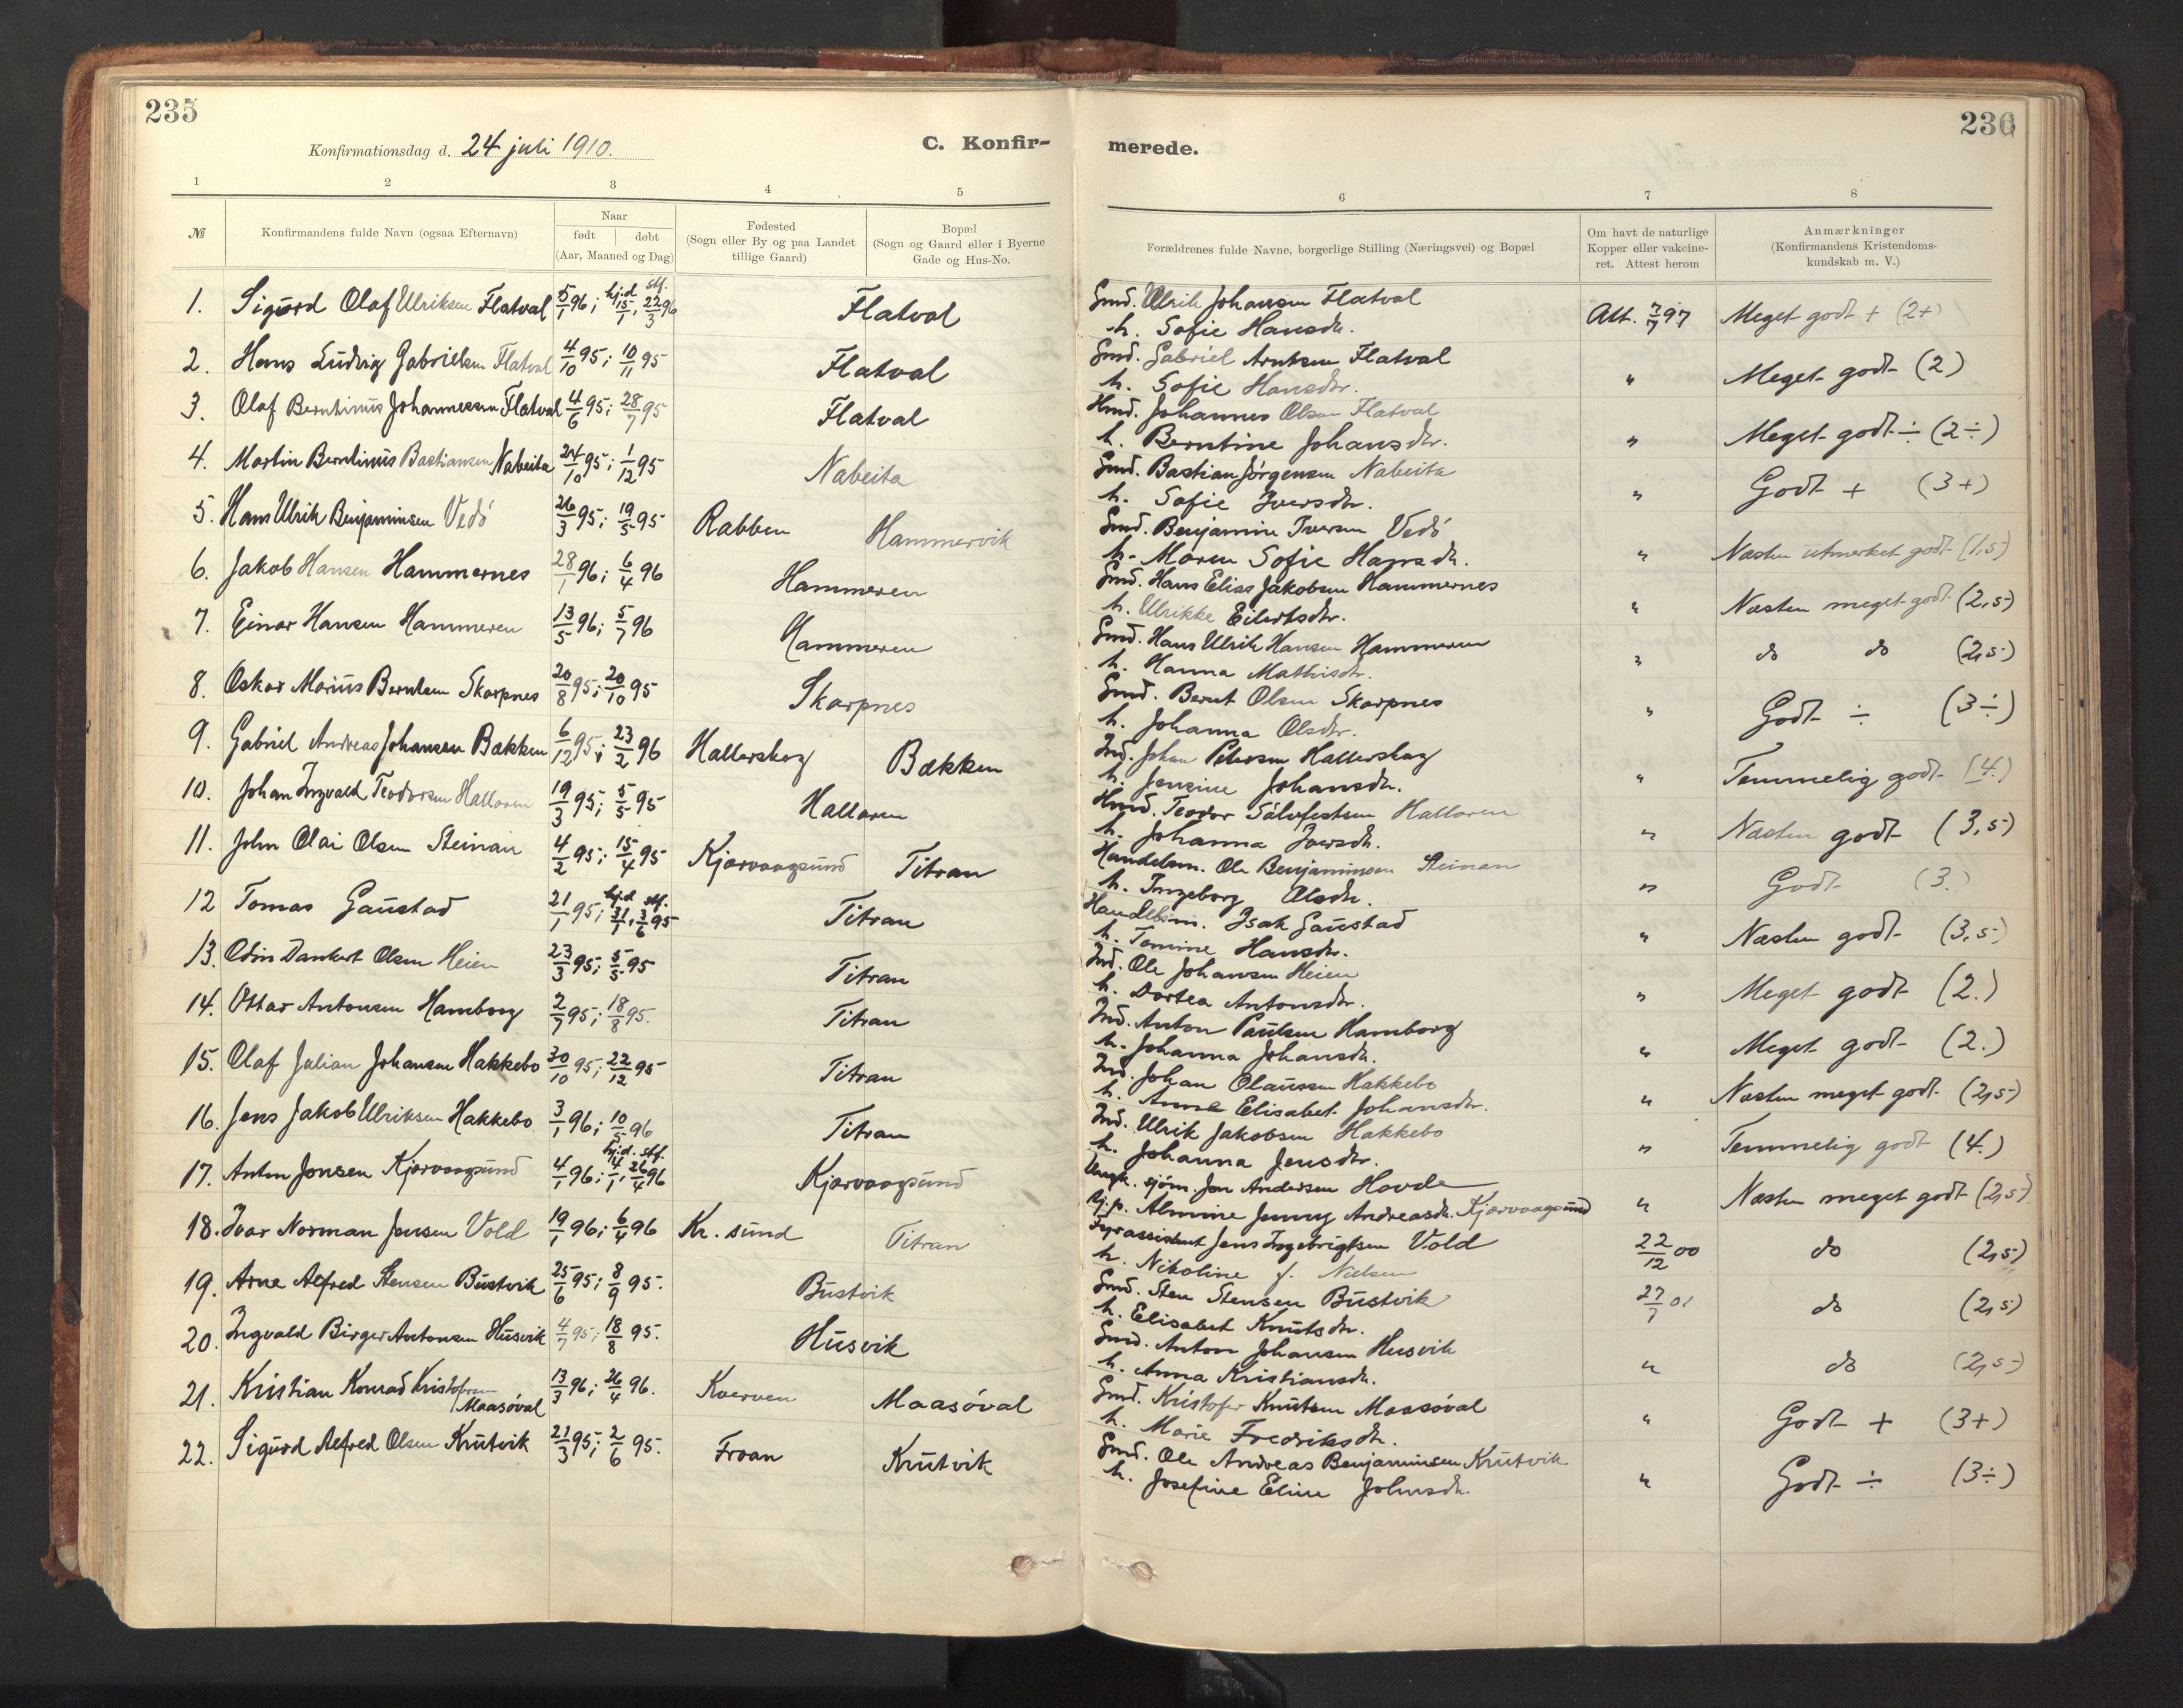 235
Konfirmationsdag d. 24 juli 1910.
C. Konfir-
1 2 3 4 5
№ Konfirmandens fulde Navn (ogsaa Efternavn) Naar født døbt (Aar, Maaned og Dag) Fødested (Sogn eller By og paa Landet tillige Gaard) Bopæl (Sogn og Gaard eller i Byerne Gade og Hus-No.
1. Sigurd Olaf Ulriksen Flatval 5/1 96; hj.d. 15/1, stf. 22/3 96 Flatval
2. Hans Ludvig Gabrielsen Flatval 4/10 95; 10/11 95 Flatval
3. Olaf Berntinus Johannessen Flatval 4/6 95; 28/7 95 Flatval
4. Martin Berntinus Bastiansen Nabeita 24/10 95; 1/12 95 Nabeita
5. Hans Ulrik Benjaminsen Vedö 26/3 95; 19/5 95 Rabben Hammervik
6. Jakob Hansen Hammernes 28/1 96; 6/4 96 Hammeren
7. Einar Hansen Hammeren 13/5 96; 5/7 96 Hammeren
8. Oskar Marius Berntsen Skarpnes 20/8 95; 20/10 95 Skarpnes
9. Gabriel Andreas Johansen Bækken 6/12 95; 23/2 96 Hallerskog Bækken
10. Johan Ingvald Teodorsen Hallaren 19/3 95; 5/5 95 Hallaren
11. John Olai Olsen Steinan 4/2 95; 15/4 95 Kjørvaagsund Titran
12 Tomas Gaustad 21/1 95; hj.d. 31/1, stf. 3/6 95 Titran
13. Odin Dankert Olsen Heien 23/3 95; 5/5 95 Titran
14. Ottar Antonsen Hamborg 2/7 95; 18/8 95. Titran
15. Olaf Julian Johansen Hakkebo 30/10 95; 22/12 95 Titran
16. Jens Jakob Ulriksen Hakkebo 3/1 96; 10/5 96 Titran
17. Anton Jonsen Kjørvaagsund 4/1 96; hj.d. 4/1, stf. 26/4 96 Kjørvaagsund
18. Ivar Norman Jensen Vold 19/1 96; 6/4 96 Kr. sund Titran
19. Arne Alfred Stensen Bustvik 25/6 95; 8/9 95. Bustvik
20. Ingvald Birger Antonsen Husvik 4/7 95; 18/8 95. Husvik
21. Kristian Konrad Kristofersen Maasöval 13/3 96; 26/4 96. Kverven Maasöval
22. Sigurd Alfred Olsen Krutvik 21/3 95; 2/6 95. Froan Krutvik
236
merede.
6 7 8
Forældrenes fulde Navne, borgerlige Stilling (Næringsvei) og Bopæl Om havt de naturlige Kopper eller vakcineret. Attest herom Anmærkninger (Konfirmandens Kristendomskundskab m. V.)
Gmd. Ulrik Johansen Flatval Att. 7/7 97 Meget godt + (2+)
h. Sofie Hansdtr.
Gmd. Gabriel Arntsen Flatval " Meget godt (2)
h. Sofie Hansdtr.
Hmd. Johannes Olsen Flatval " Meget godt ÷ (2÷)
h. Berntine Johansdtr.
Gmd. Bastian Jörgensen Nabeita " Godt + (3+)
h. Sofie Iversdtr.
Gmd. Benjamin Iversen Vedö " Næsten utmerket godt (1,5)
h. Maren Sofie Hansdtr.
Gmd. Hans Elias Jakobsen Hammernes " Næsten meget godt (2,5)
h. Ulrikke Eilertsdtr.
Gmd. Hans Ulrik Hansen Hammeren " do do (2,5)
h. Hanna Mathisdtr.
Gmd. Bernt Olsen Skarpnes " Godt ÷ (3÷)
h. Johanna Olsdtr.
Ind. Johan Petersen Hallerskog " Temmelig godt (4.)
h. Jensine Johansdtr.
Hmd. Teodor Sälvfestsen Hallaren " Næsten godt (3,5)
h. Johanna Iversdtr.
Handelsm. Ole Benjaminsen Steinan " Godt (3.)
h. Ingeborg Olsdtr.
Handelsm. Isak Gaustad " Næsten godt (3,5)
h. Tomine Hansdtr.
Ind. Ole Johansen Heien " Meget godt (2.)
h. Dortea Antonsdtr.
Ind. Anton Paulsen Hamborg " Meget godt (2.)
h. Johanna Johansdtr.
Ind. Johan Olaussen Hakkebo " Næsten meget godt (2,5)
h. Anna Elisabet Johansdtr.
Ind. Ulrik Jakobsen Hakkebo " Temmelig godt (4.)
h. Johanna Jensdtr.
Ungk. sjöm. Jon Andersen Hovde " Næsten meget godt (2,5)
Pj.p. Almine Jenny Andreasdtr. Kjørvaagsund
Fyrassistent Jens Ingebrigtsen Vold 22/12 00 do (2,5)
h. Nikoline f. Nielsen
Gmd. Sten Stensen Bustvik 27/7 01 do (2,5)
h. Elisabet Knutsdtr.
Gmd. Anton Johansen Husvik " do (2,5)
h. Anna Kristiansdtr.
Gmd. Kristofer Knutsen Maasöval " Godt + (3+)
h. Marie Fredriksdtr.
Gmd. Ole Andreas Benjaminsen Krutvik " Godt ÷ (3÷)
h. Josefine Eline Johnsdtr.